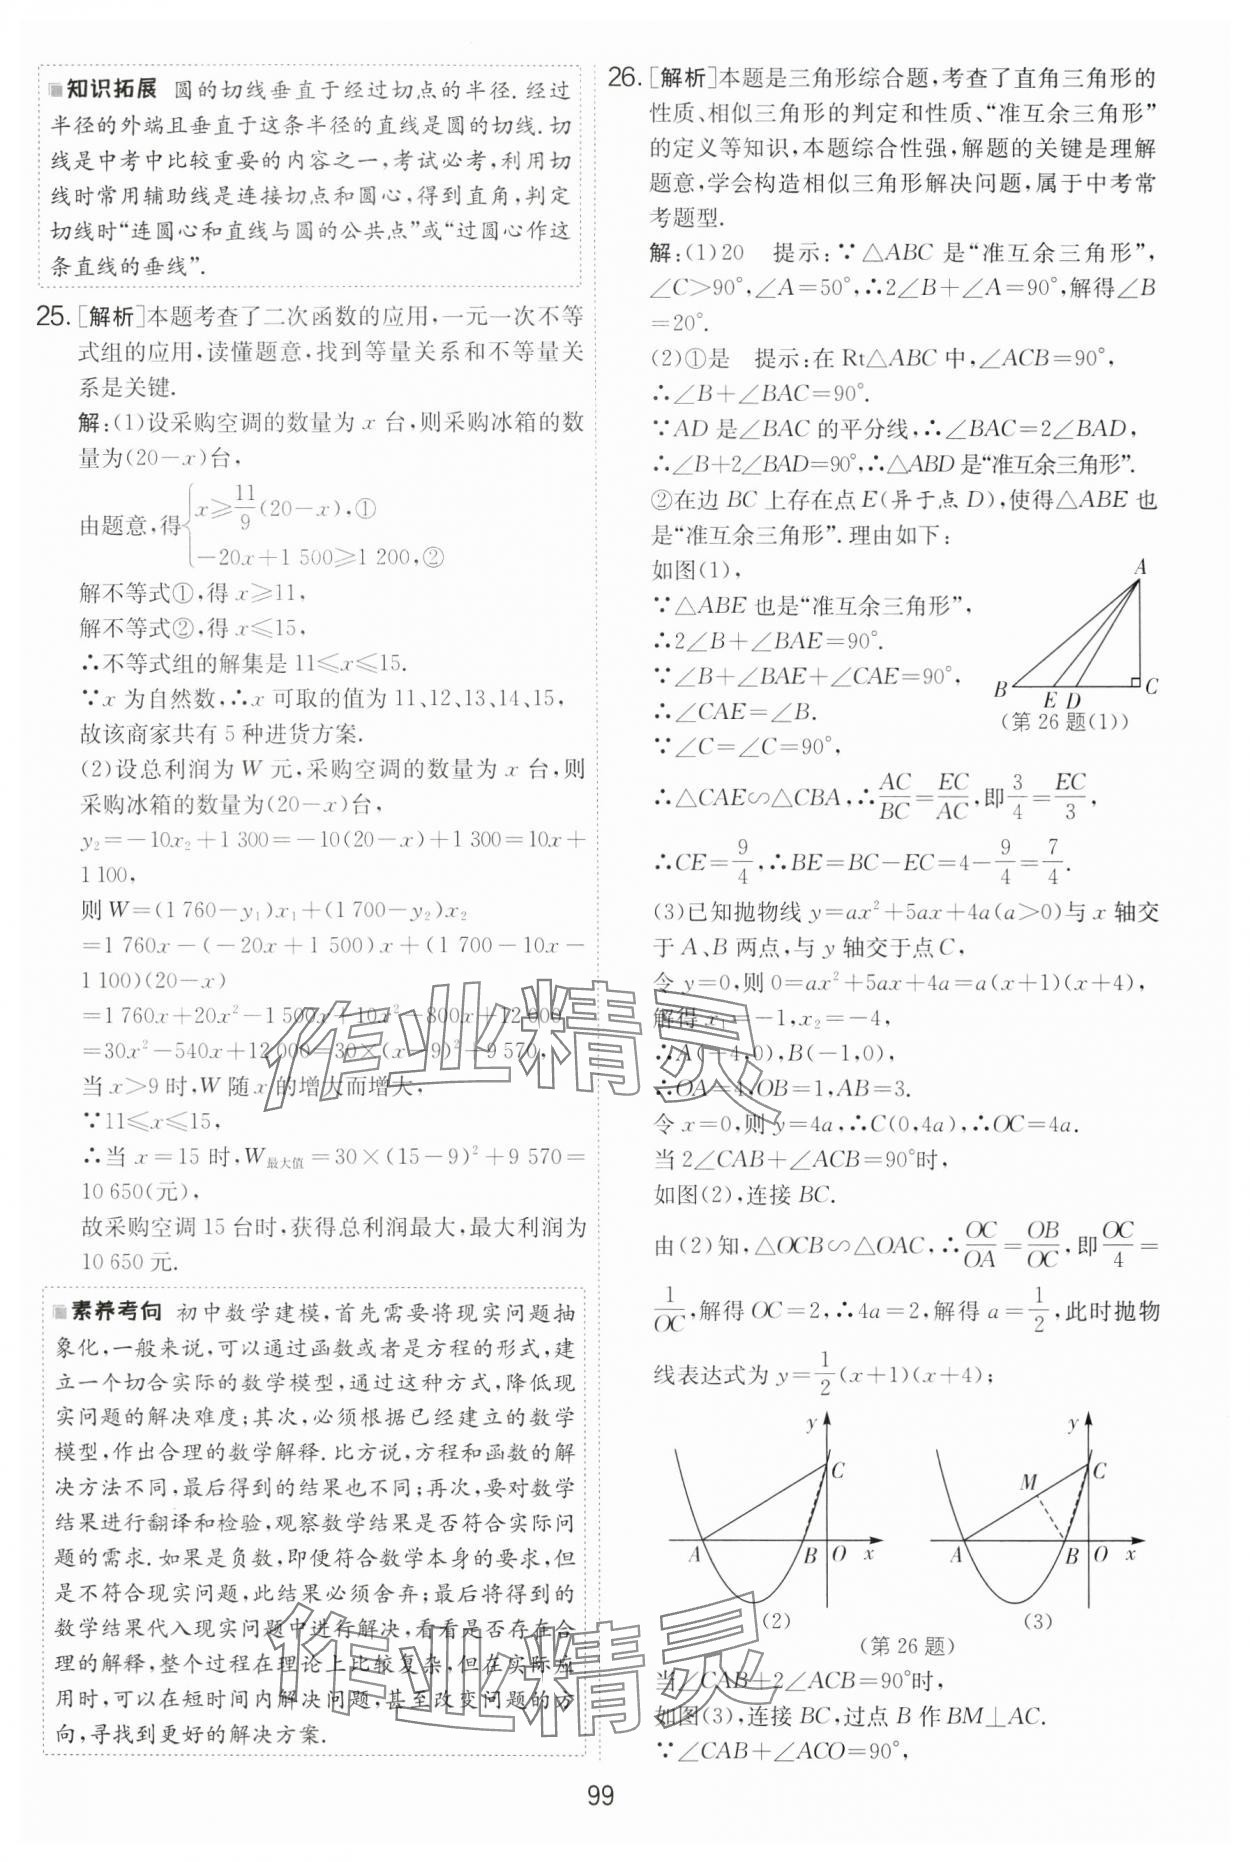 知识拓展 圆的切线垂直于经过切点的半径.经过
半径的外端且垂直于这条半径的直线是圆的切线.切
线是中考中比较重要的内容之一,考试必考,利用切
线时常用辅助线是连接切点和圆心,得到直角,判定
切线时“连圆心和直线与圆的公共点”或“过圆心作这
条直线的垂线”.
25.[解析]本题考查了二次函数的应用,一元一次不等
式组的应用,读懂题意,找到等量关系和不等量关
系是关键.
解:(1)设采购空调的数量为 x 台,则采购冰箱的数
量为(20-x)台,
由题意,得{x≥11/9(20-x),①
-20x+1 500≥1 200,②
解不等式①,得 x≥11,
解不等式②,得 x≤15,
∴不等式组的解集是 11≤x≤15.
∵x 为自然数,∴x 可取的值为 11、12、13、14、15,
故该商家共有 5 种进货方案.
(2)设总利润为 W 元,采购空调的数量为 x 台,则
采购冰箱的数量为(20-x)台,
y₂=-10x₂+1 300=-10(20-x)+1 300=10x+
1 100,
则 W=(1 760-y₁)x₁+(1 700-y₂)x₂
=1 760x-(-20x+1 500)x+(1 700-10x-
1 100)(20-x)
=1 760x+20x²-1 500x+10x²-800x+12 000
=30x²-540x+12 000=30×(x-9)²+9 570,
当 x>9 时,W 随 x 的增大而增大,
∵11≤x≤15,
∴当 x=15 时,W最大值=30×(15-9)²+9 570=
10 650(元),
故采购空调 15 台时,获得总利润最大,最大利润为
10 650 元.
素养考向 初中数学建模,首先需要将现实问题抽
象化,一般来说,可以通过函数或者是方程的形式,建
立一个切合实际的数学模型,通过这种方式,降低现
实问题的解决难度;其次,必须根据已经建立的数学
模型,作出合理的数学解释.比方说,方程和函数的解
决方法不同,最后得到的结果也不同;再次,要对数学
结果进行翻译和检验,观察数学结果是否符合实际问
题的需求.如果是负数,即便符合数学本身的要求,但
是不符合现实问题,此结果必须舍弃;最后将得到的
数学结果代入现实问题中进行解决,看看是否存在合
理的解释,整个过程在理论上比较复杂,但在实际应
用时,可以在短时间内解决问题,甚至改变问题的方
向,寻找到更好的解决方案.
26.[解析]本题是三角形综合题,考查了直角三角形的
性质、相似三角形的判定和性质、“准互余三角形”
的定义等知识,本题综合性强,解题的关键是理解
题意,学会构造相似三角形解决问题,属于中考常
考题型.
解:(1)20 提示:∵△ABC 是“准互余三角形”,
∠C>90°,∠A=50°,∴2∠B+∠A=90°,解得∠B
=20°.
(2)①是 提示:在 Rt△ABC 中,∠ACB=90°,
∴∠B+∠BAC=90°.
∵AD 是∠BAC 的平分线,∴∠BAC=2∠BAD,
∴∠B+2∠BAD=90°,∴△ABD 是“准互余三角形”.
②在边 BC 上存在点 E(异于点 D),使得△ABE 也
是“准互余三角形”.理由如下:
如图(1),
∵△ABE 也是“准互余三角形”,
∴2∠B+∠BAE=90°.
∵∠B+∠BAE+∠CAE=90°,
∴∠CAE=∠B.
∵∠C=∠C=90°,
A
B E D C
(第 26 题(1))
∴△CAE∽△CBA,∴AC/BC=EC/AC,即3/4=EC/3,
∴CE=9/4,∴BE=BC-EC=4-9/4=7/4.
(3)已知抛物线 y=ax²+5ax+4a(a>0)与 x 轴交
于 A、B 两点,与 y 轴交于点C,
令 y=0,则 0=ax²+5ax+4a=a(x+1)(x+4),
解得 x₁=-1,x₂=-4,
∴A(-4,0),B(-1,0),
∴OA=4,OB=1,AB=3.
令 x=0,则 y=4a,∴C(0,4a),∴OC=4a.
当 2∠CAB+∠ACB=90°时,
如图(2),连接 BC.
由(2)知,△OCB∽△OAC,∴OC/OA=OB/OC,即OC/4=
1/OC,解得 OC=2,∴4a=2,解得 a=1/2,此时抛物
线表达式为 y=1/2(x+1)(x+4);
y
C
A B O x
(2)
y
C
M
A B O x
(3)
(第 26 题)
当∠CAB+2∠ACB=90°时,
如图(3),连接 BC,过点 B 作 BM⊥AC.
∵∠CAB+∠ACO=90°,
99
作业精灵
作业精灵